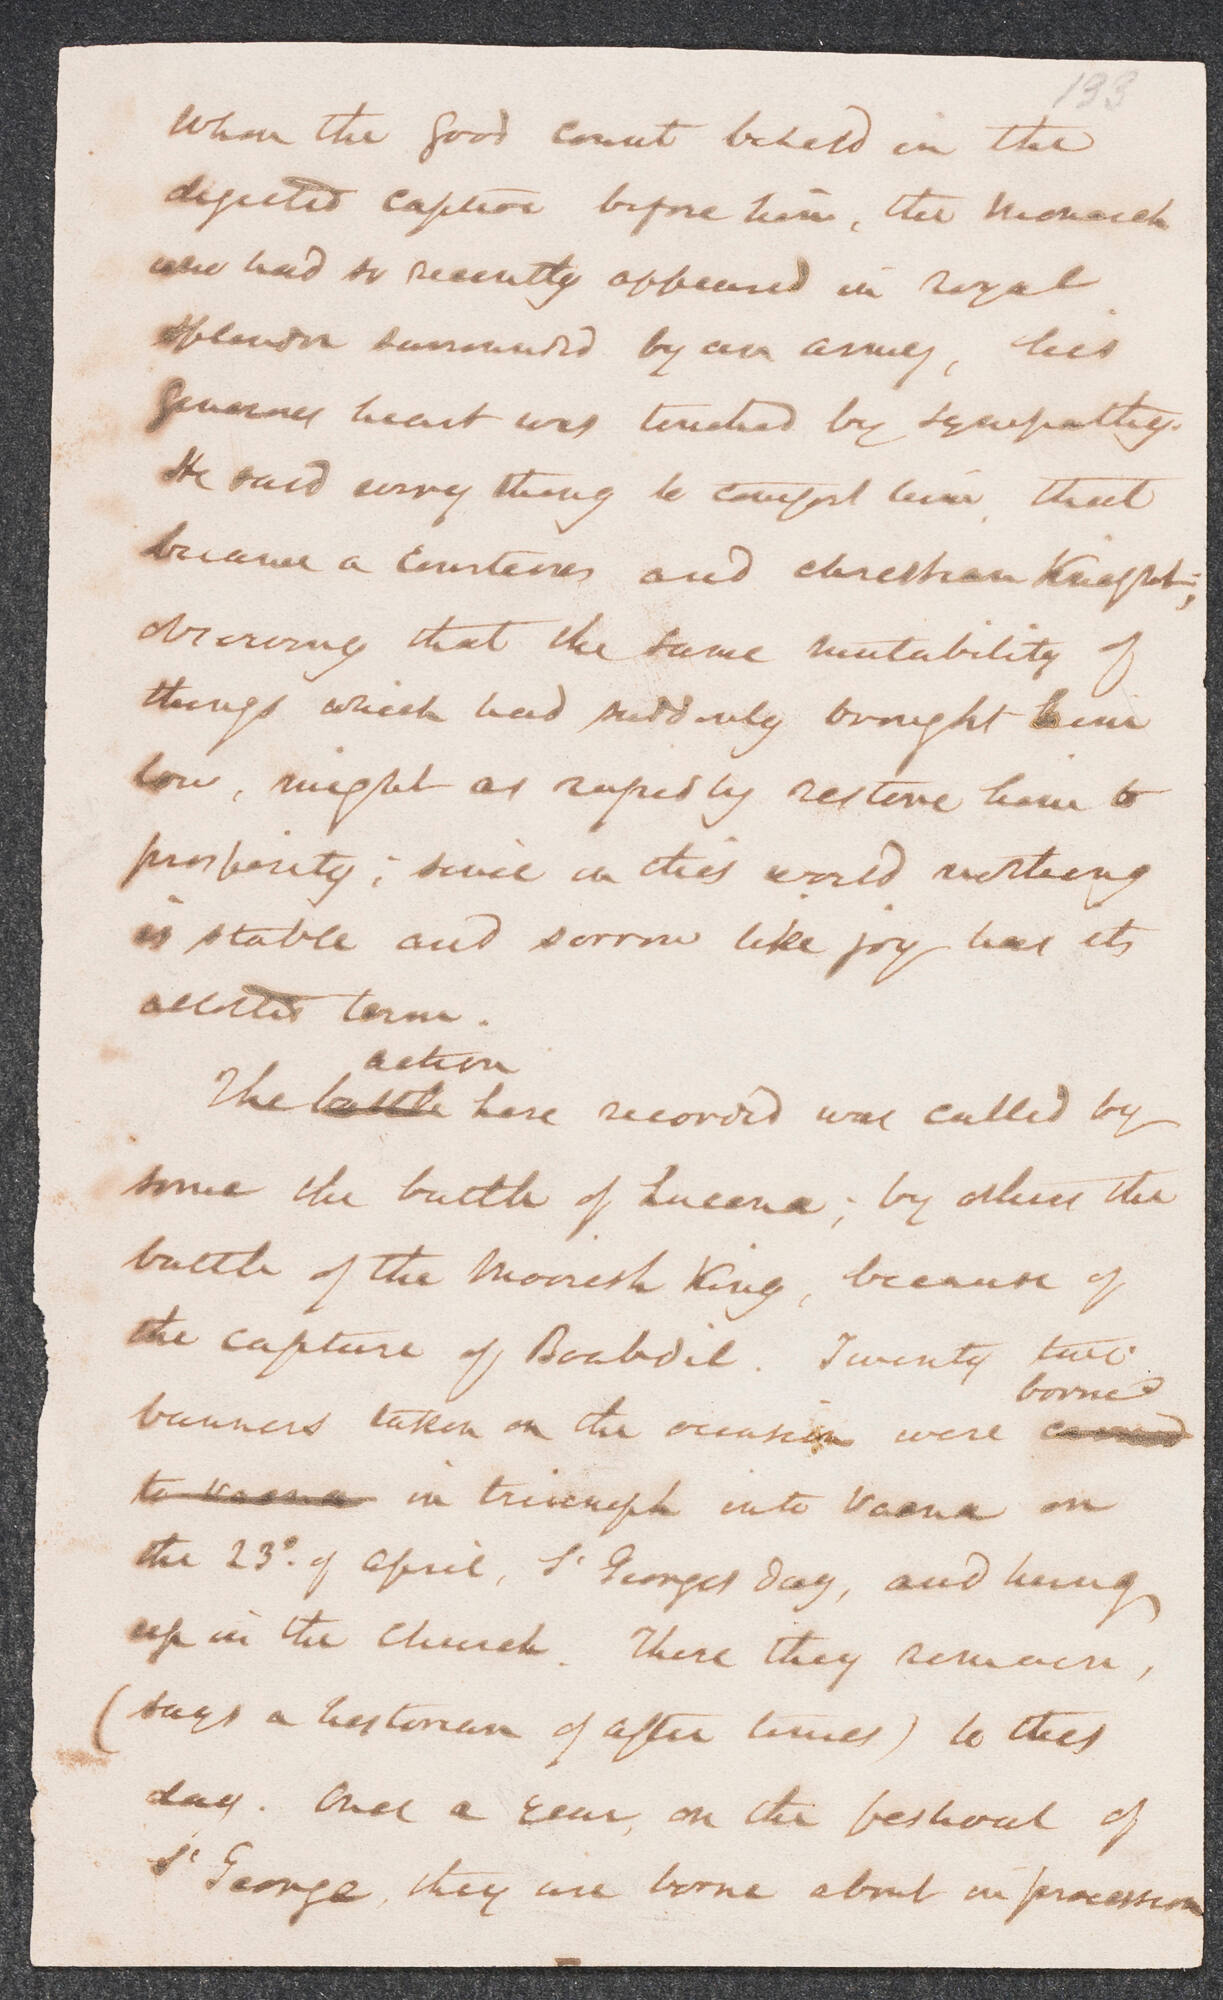 133
When the good count beheld in the
dejected captive before him, the Monarch
who had so recently appeared in royal
splendor surrounded by an army, his
generous heart was touched by sympathy.
He said every thing to comfort him, that
became a courteous and christian Knight;
observing that the same mutability of
things which had suddenly brought him
low, might as rapidly restore him to
prosperity; since in this world nothing
is stable and sorrow like joy has its
allotted term.
action
The battle here recorded was called by
some the battle of Lucena; by others the
battle of the Moorish King, because of
the capture of Boabdil. Twenty two
borne
banners taken on the occasion were carried
to Vaena in triumph into Vaena on
the 23d. of April, St Georges day, and hung
up in the church. There they remain,
(says a historian of after times) to this
day. Once a year, on the festival of
St George, they are borne about in procession